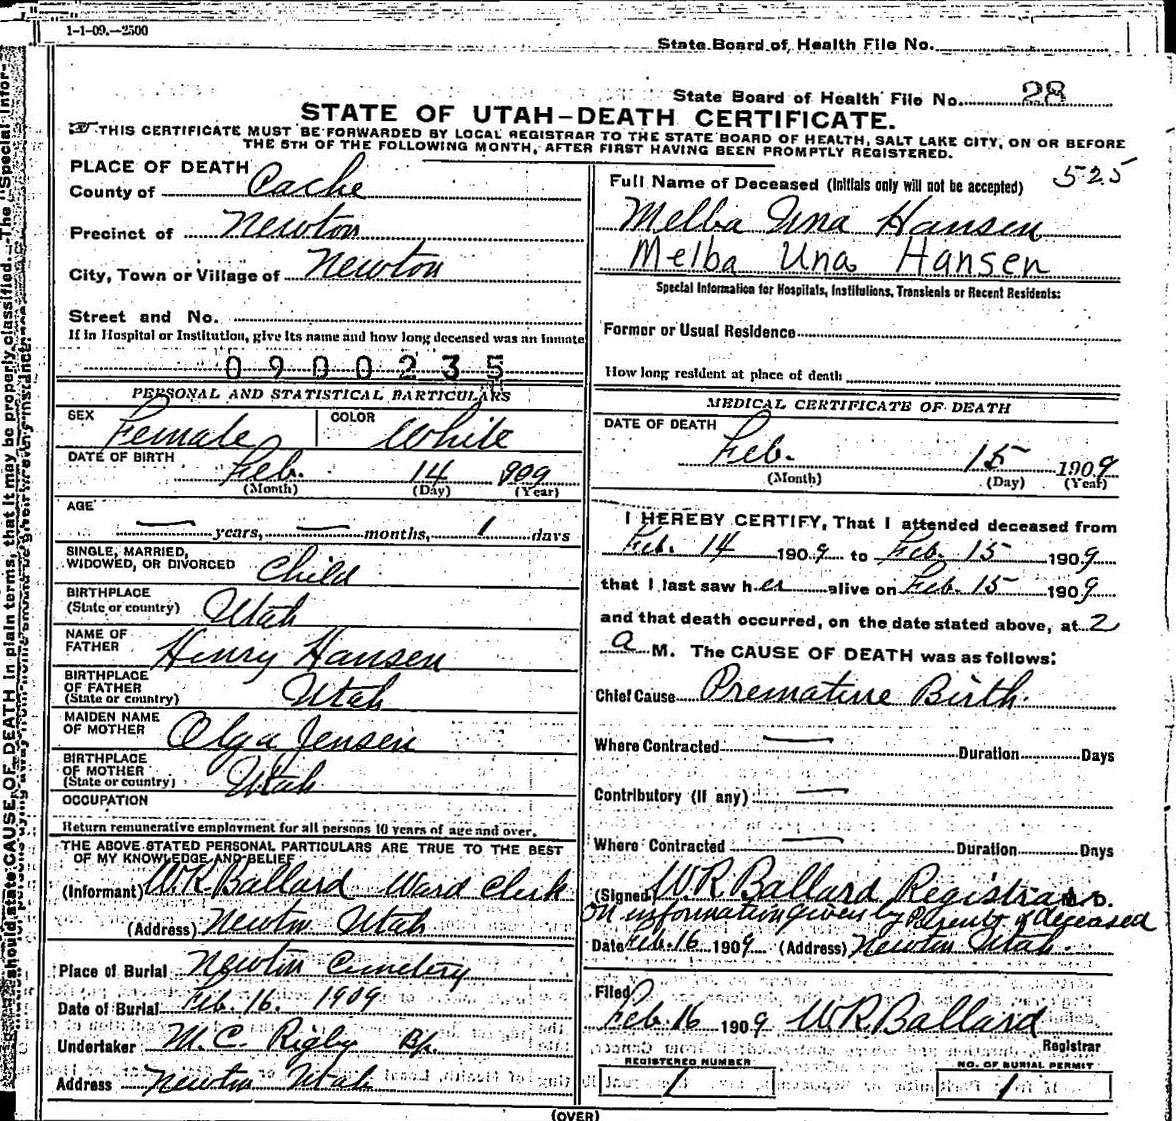 1-1-09.—2500
State Board of Health File No.
State Board of Health File No. 28
STATE OF UTAH-DEATH CERTIFICATE.
THIS CERTIFICATE MUST BE FORWARDED BY LOCAL REGISTRAR TO THE STATE BOARD OF HEALTH, SALT LAKE CITY, ON OR BEFORE
THE 5TH OF THE FOLLOWING MONTH, AFTER FIRST HAVING BEEN PROMPTLY REGISTERED.
PLACE OF DEATH
County of Cache
Precinct of Newton
City, Town or Village of Newton
Street and No.
If in Hospital or Institution, give its name and how long deceased was an inmate
0900235
PERSONAL AND STATISTICAL PARTICULARS
SEX Female COLOR White
DATE OF BIRTH Feb. 14 909
(Month) (Day) (Year)
AGE
— years, — months, 1 days
SINGLE, MARRIED,
WIDOWED, OR DIVORCED Child
BIRTHPLACE
(State or country) Utah
NAME OF
FATHER Henry Hansen
BIRTHPLACE
OF FATHER
(State or country) Utah
MAIDEN NAME
OF MOTHER Olga Jensen
BIRTHPLACE
OF MOTHER
(State or country) Utah
OCCUPATION
Return remunerative employment for all persons 10 years of age and over.
THE ABOVE STATED PERSONAL PARTICULARS ARE TRUE TO THE BEST
OF MY KNOWLEDGE AND BELIEF
(Informant) W R Ballard Ward Clerk
(Address) Newton Utah
Place of Burial Newton Cemetery
Date of Burial Feb. 16. 1909
Undertaker M. C. Rigby Bp.
Address Newton Utah
525
Full Name of Deceased (Initials only will not be accepted)
Melba Una Hansen
Melba Una Hansen
Special Information for Hospitals, Institutions, Transients or Recent Residents:
Former or Usual Residence
How long resident at place of death
MEDICAL CERTIFICATE OF DEATH
DATE OF DEATH
Feb. 15 1909
(Month) (Day) (Year)
I HEREBY CERTIFY, That I attended deceased from
Feb. 14 1909 to Feb. 15 1909
that I last saw her alive on Feb. 15 1909
and that death occurred, on the date stated above, at 2
a M. The CAUSE OF DEATH was as follows:
Chief Cause Premature Birth.
Where Contracted — Duration Days
Contributory (if any) —
Where Contracted — Duration Days
(Signed) W R Ballard Registrar
on information given by Parents of deceased
Date Feb. 16 1909 (Address) Newton Utah.
Filed
Feb. 16 1909 W R Ballard
Registrar
REGISTERED NUMBER
1
NO. OF BURIAL PERMIT
1
(OVER)
should state CAUSE OF DEATH in plain terms, that it may be properly classified. The "Special Infor-